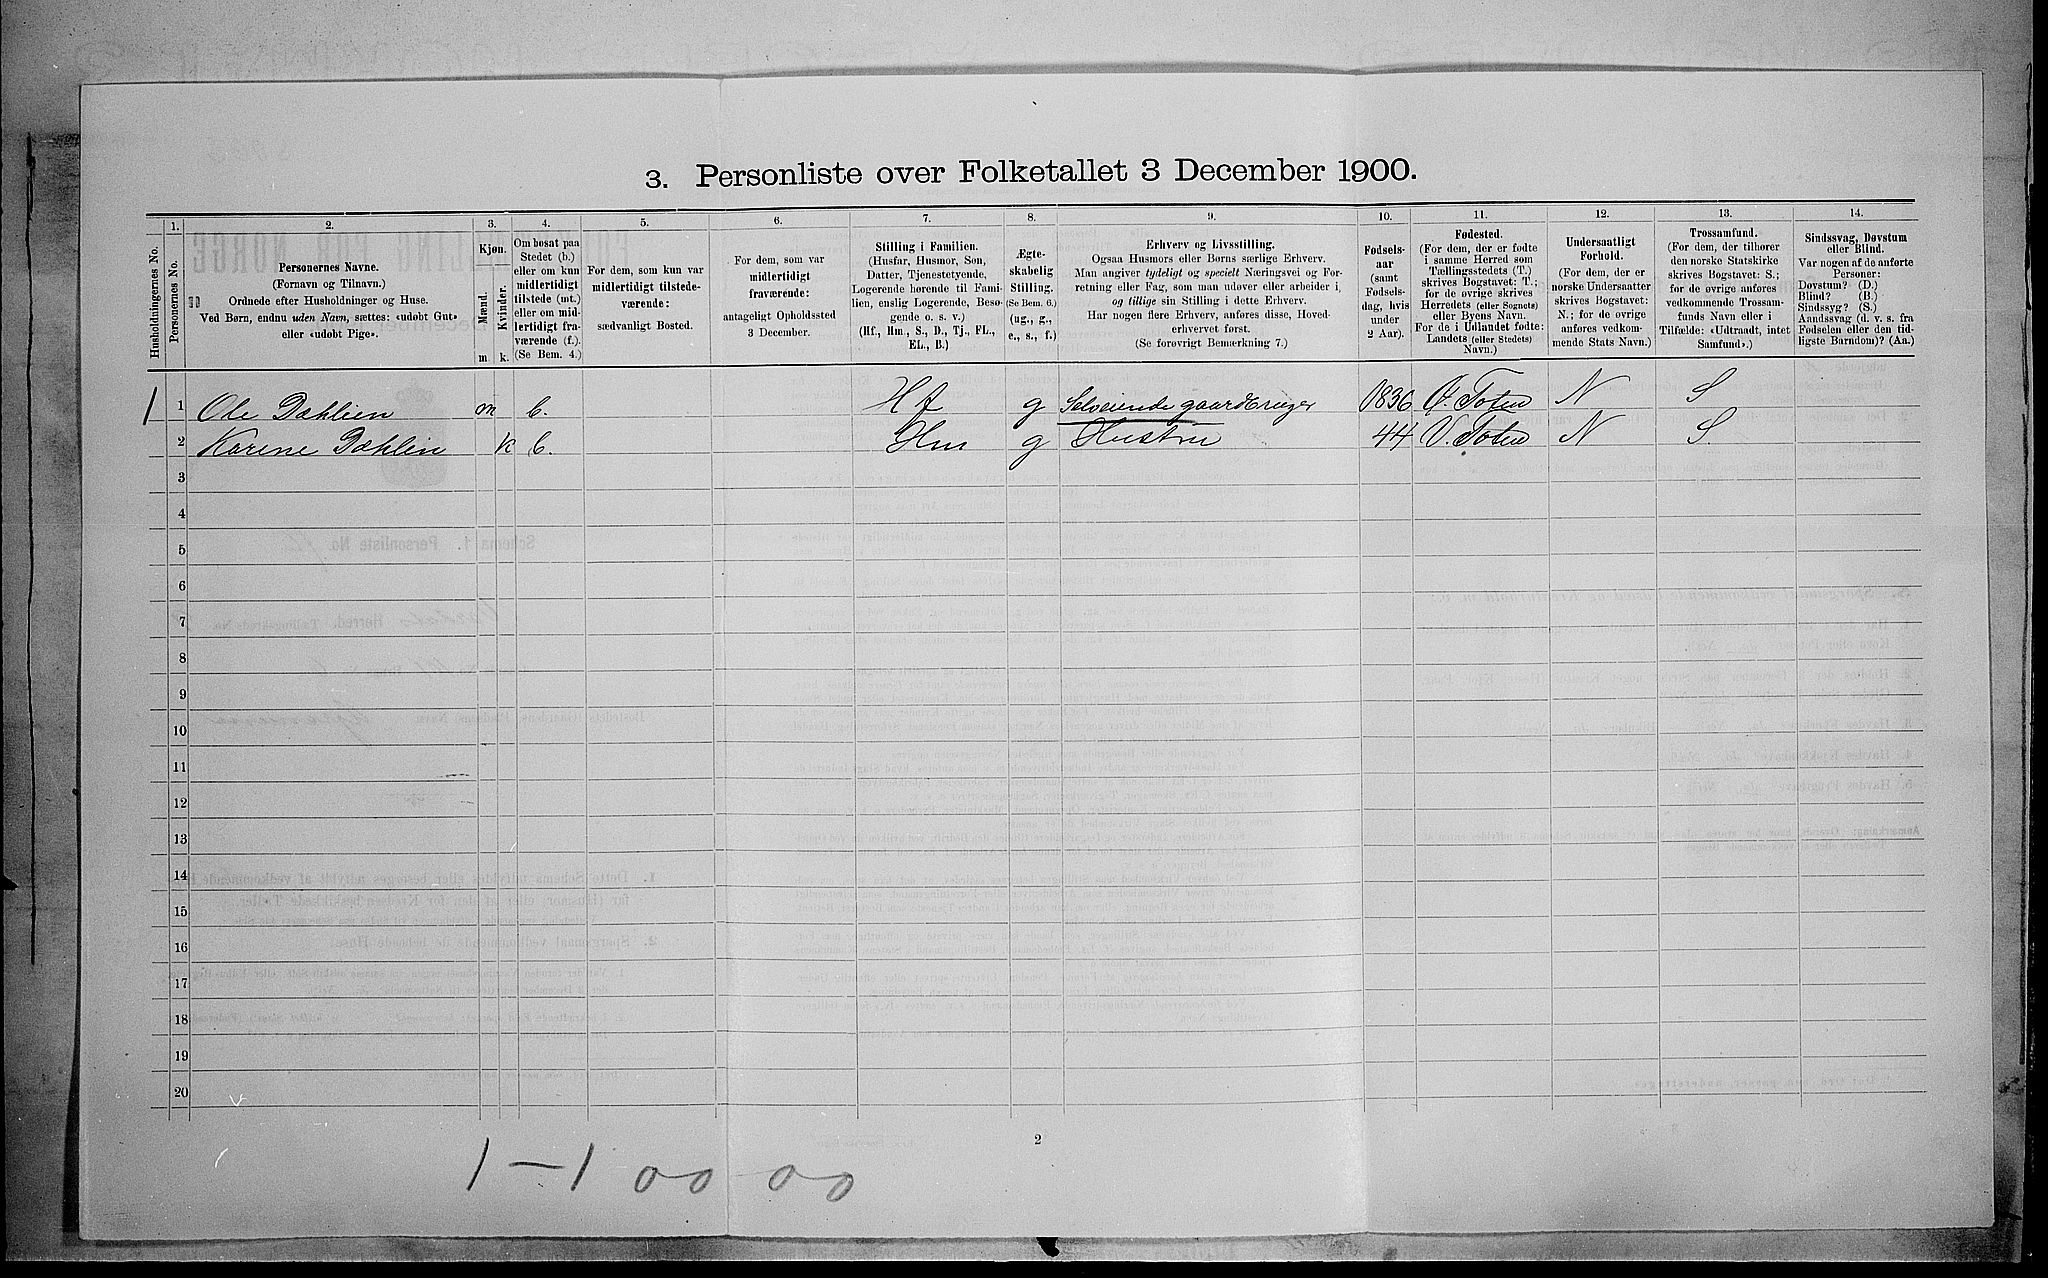 3. Personliste over Folketallet 3 December 1900.
Husholdningernes No.
1.
Personernes No.
2.
Personernes Navne.
(Fornavn og Tilnavn.)
Ordnede efter Husholdninger og Huse.
Ved Børn, endnu uden Navn, sættes: «udøbt Gut»
eller «udøbt Pige».
3.
Kjøn.
Mænd.
Kvinder.
m k.
4.
Om bosat paa
Stedet (b.)
eller om kun
midlertidigt
tilstede (mt.)
eller om mid-
lertidigt fra-
værende (f.).
(Se Bem. 4.)
5.
For dem, som kun var
midlertidigt tilstede-
værende:
sædvanligt Bosted.
6.
For dem, som var
midlertidigt
fraværende:
antageligt Opholdssted
3 December.
7.
Stilling i Familien.
(Husfar, Husmor, Søn,
Datter, Tjenestetyende,
Logerende hørende til Fami-
lien, enslig Logerende, Besø-
gende o. s. v.)
(Hf., Hm., S., D., Tj., FL.,
EL., B.)
8.
Ægte-
skabelig
Stilling.
(Se Bem. 6.)
(ug., g.,
e., s., f.)
9.
Erhverv og Livsstilling.
Ogsaa Husmors eller Børns særlige Erhverv.
Man angiver tydeligt og specielt Næringsvei og For-
retning eller Fag, som man udøver eller arbeider i,
og tillige sin Stilling i dette Erhverv.
Har nogen flere Erhverv, anføres disse, Hoved-
erhvervet først.
(Se forøvrigt Bemærkning 7.)
10.
Fødsels-
aar
(samt
Fødsels-
dag, hvis
under
2 Aar).
11.
Fødested.
(For dem, der er fødte
i samme Herred som
Tællingsstedets (T.)
skrives Bogstavet: T.;
for de øvrige skrives
Herredets (eller Sognets)
eller Byens Navn.
For de i Udlandet fødte:
Landets (eller Stedets)
Navn.)
12.
Undersaatligt
Forhold.
(For dem, der er
norske Undersaatter
skrives Bogstavet:
N.; for de øvrige
anføres vedkom-
mende Stats Navn.)
13.
Trossamfund.
(For dem, der tilhører
den norske Statskirke
skrives Bogstavet: S.;
for de øvrige anføres
vedkommende Trossam-
funds Navn eller i
Tilfælde: «Udtraadt, intet
Samfund».)
14.
Sindssvag, Døvstum
eller Blind.
Var nogen af de anførte
Personer:
Døvstum? (D.)
Blind? (B.)
Sindssyg? (S.)
Aandssvag (d. v. s. fra
Fødselen eller den tid-
ligste Barndom)? (Aa.)
1 1 Ole Dæhlien m b. Hf g Selveiende gaardbruger 1836 Ø. Toten N S
2 Karene Dæhlin k b. Hm g Hustru 44 V. Toten N S.
3
4
5
6
7
8
9
10
11
12
13
14
15
16
17
18
19
20
2
1–1 00 00